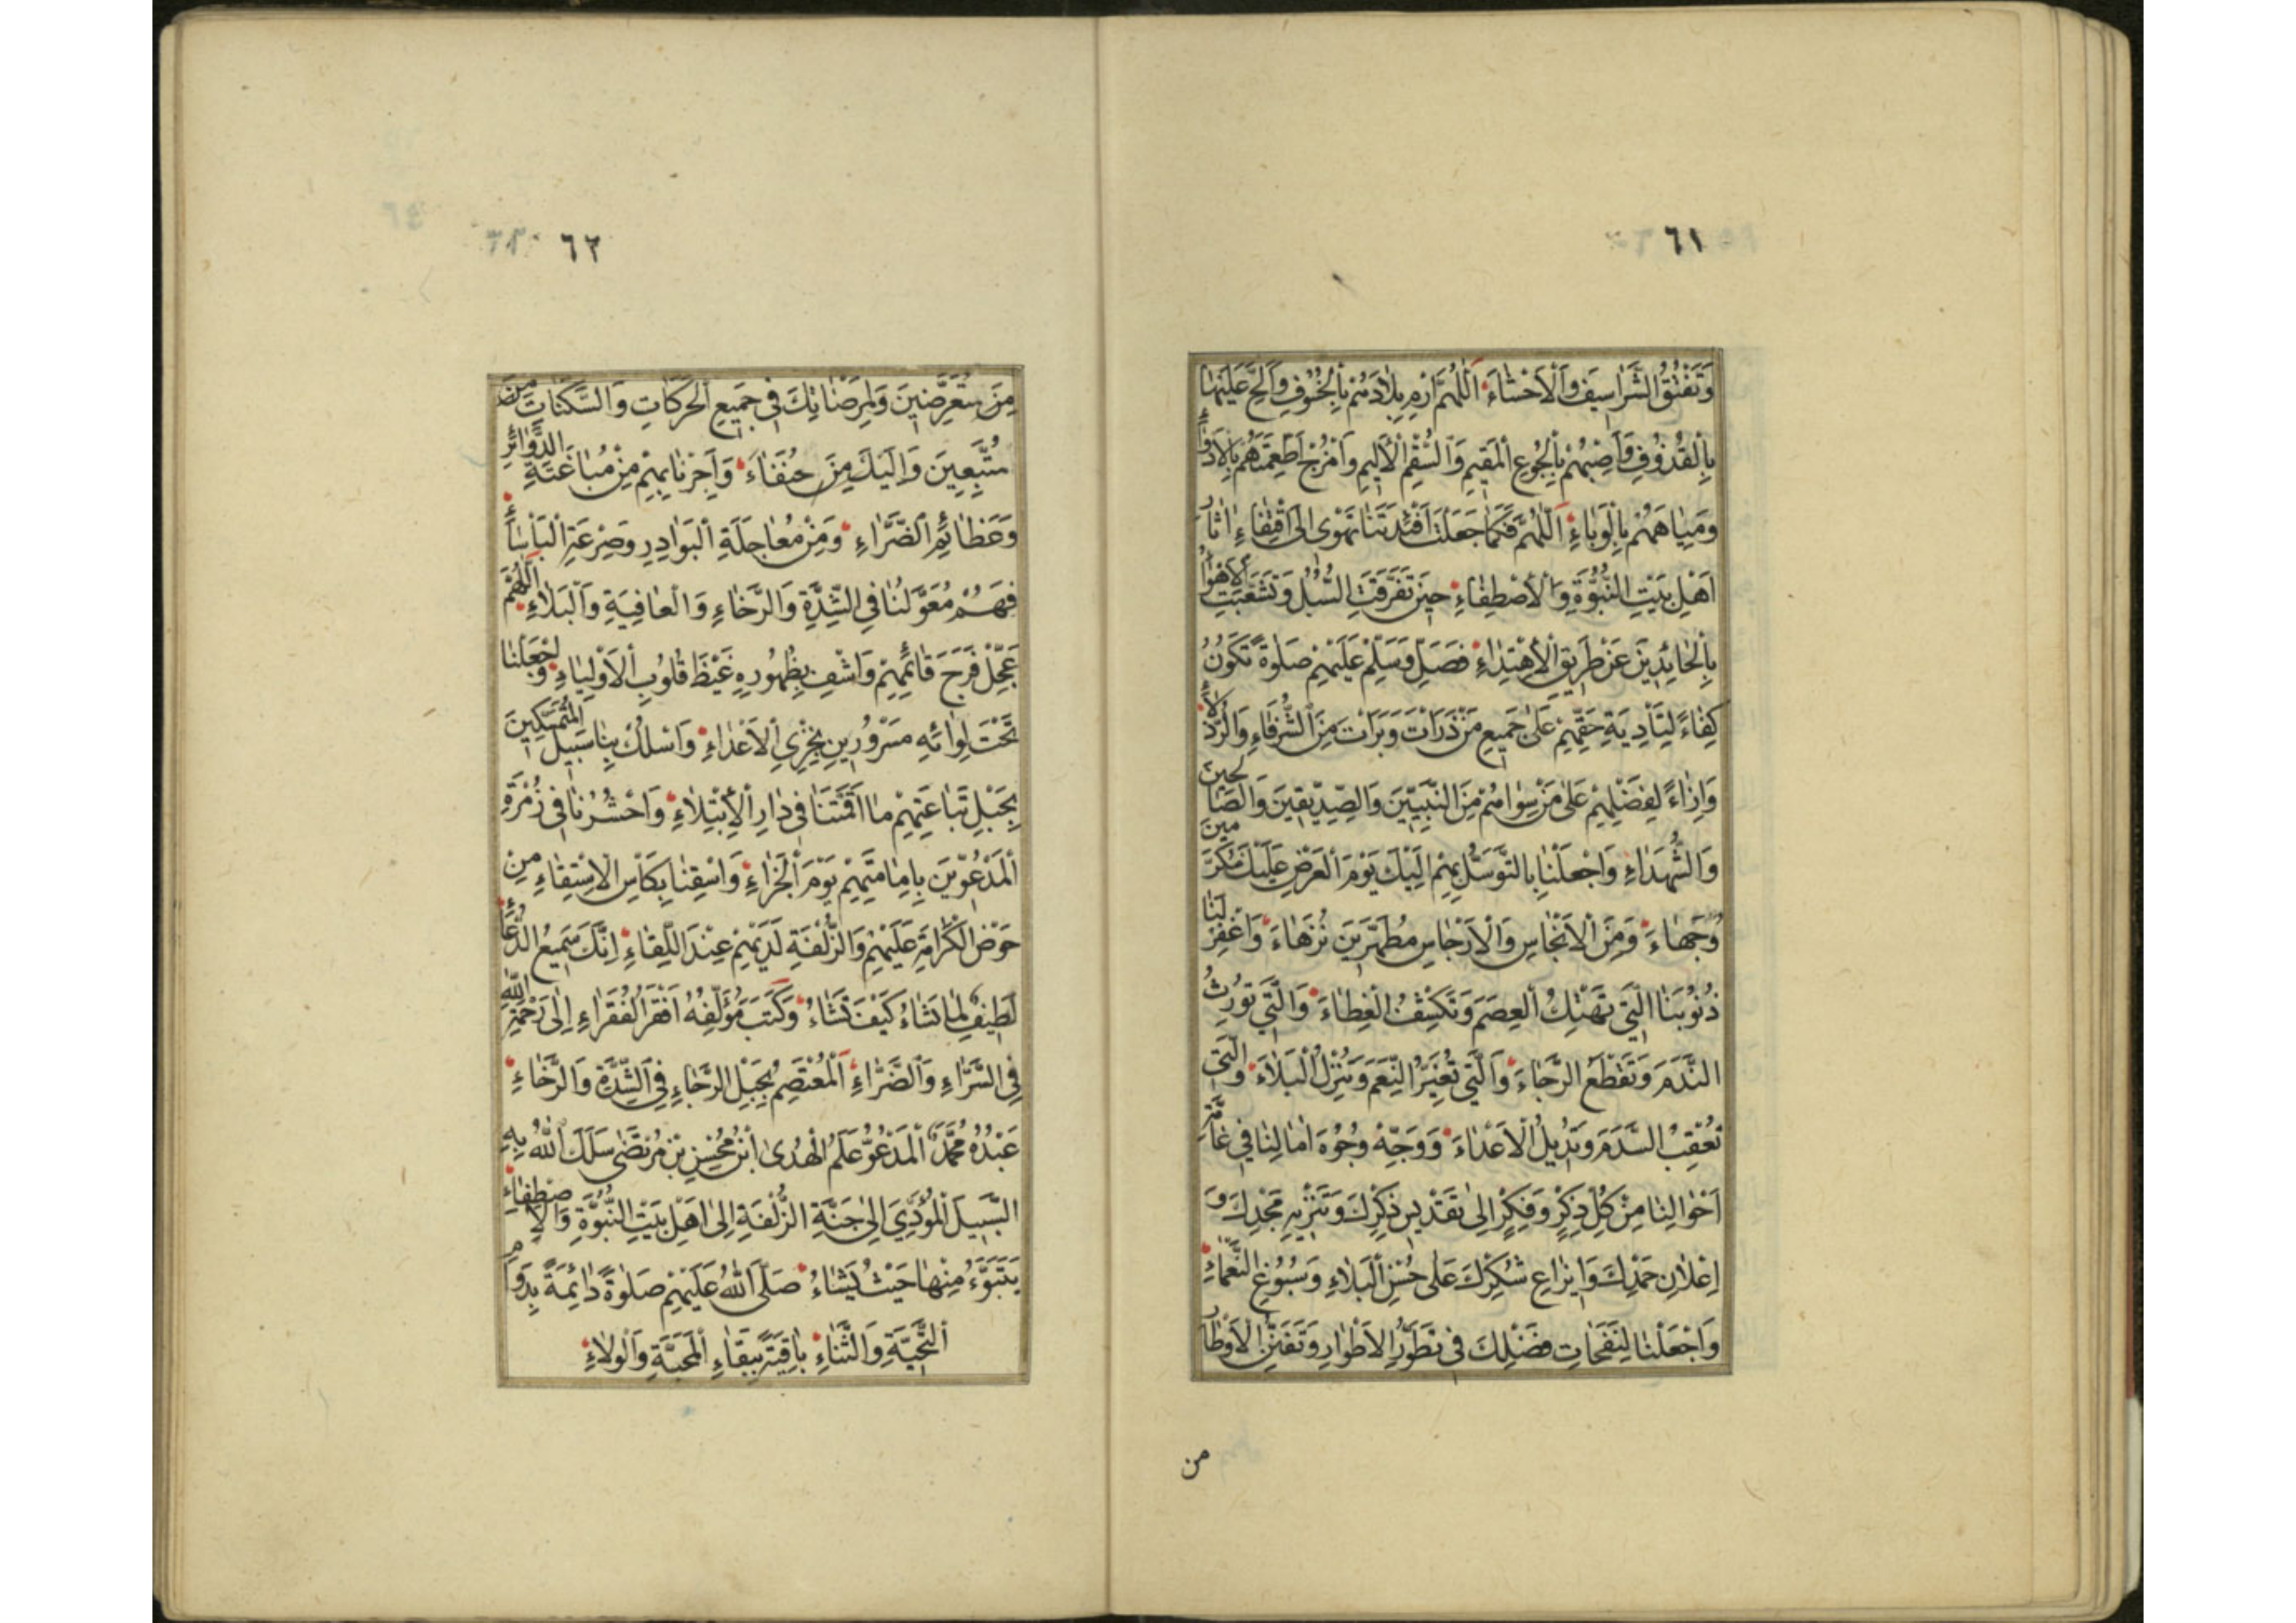 ٦١
وَتَفْتُقُ الشَّرَاسِيفَ وَالْاَحْشَاءَ اَللّٰهُمَّ ارْمِ بِلَادَهُمْ بِالْخُسُوفِ وَاَلِحَّ عَلَيْهَا
بِالْقُذُوفِ وَاَصِبْهُمْ بِالْجُوعِ الْمُقِيمِ وَالسُّقْمِ الْاَلِيمِ وَامْزُجْ اَطْعِمَتَهُمْ بِالْاَدْوَاءِ
وَمِيَاهَهُمْ بِالْوَبَاءِ اَللّٰهُمَّ فَكَمَا جَعَلْتَ اَفْئِدَتَنَا تَهْوٰى اِلَى اقْتِفَاءِ اٰثَارِ
اَهْلِ بَيْتِ النُّبُوَّةِ وَالْاِصْطِفَاءِ حِينَ تَفَرَّقَتِ السُّبُلُ وَتَشَعَّبَتِ الْاَهْوَاءُ
بِالْحَائِدِينَ عَنْ طَرِيقِ الْاِهْتِدَاءِ فَصَلِّ وَسَلِّمْ عَلَيْهِمْ صَلٰوةً تَكُونُ
كِفَاءً لِتَأْدِيَةِ حَقِّهِمْ عَلٰى جَمِيعِ مَنْ ذَرَاْتَ وَبَرَاْتَ مِنَ الشُّرَفَاءِ وَالرُّذَلَاءِ
وَاِزَاءً لِفَضْلِهِمْ عَلٰى مَنْ سِوَاهُمْ مِنَ النَّبِيِّينَ وَالصِّدِّيقِينَ وَالصَّالِحِينَ
وَالشُّهَدَاءِ وَاجْعَلْنَا بِالتَّوَسُّلِ بِهِمْ اِلَيْكَ يَوْمَ الْعَرْضِ عَلَيْكَ مُكَرَّمِينَ
وُجَهَاءَ وَمِنَ الْاَنْجَاسِ وَالْاَرْجَاسِ مُطَهَّرِينَ نُزَهَاءَ وَاغْفِرْ لَنَا
ذُنُوبَنَا الَّتِي تَهْتِكُ الْعِصَمَ وَتَكْشِفُ الْغِطَاءَ وَالَّتِي تُورِثُ
النَّدَمَ وَتَقْطَعُ الرَّجَاءَ وَالَّتِي تُغَيِّرُ النِّعَمَ وَتُنْزِلُ الْبَلَاءَ وَالَّتِي
تُعْقِبُ السَّدَمَ وَتُدِيلُ الْاَعْدَاءَ وَوَجِّهْ وُجُوهَ اٰمَالِنَا فِي عَامَّةِ
اَحْوَالِنَا مِنْ كُلِّ ذِكْرٍ وَفِكْرٍ اِلٰى تَقْدِيسِ ذِكْرِكَ وَتَنْزِيهِ مَجْدِكَ وَ
اِعْلَانِ حَمْدِكَ وَاِيزَاعِ شُكْرِكَ عَلٰى حُسْنِ الْبَلَاءِ وَسُبُوغِ النَّعْمَاءِ
وَاجْعَلْنَا لِنَفَحَاتِ فَضْلِكَ فِي تَطَوُّرِ الْاَطْوَارِ وَتَفَنُّنِ الْاَوْطَارِ
من
٦٢
مِنَ مُتَعَرِّضِينَ وَلِمَرْضَاتِكَ فِي جَمِيعِ الْحَرَكَاتِ وَالسَّكَنَاتِ مِنَ
مُتَّبِعِينَ وَاِلَيْكَ مِنَ حُنَفَاءَ وَاَجِرْنَا بِهِمْ مِنْ مُبَاغَتَةِ الدَّوَائِرِ
وَعَظَائِمِ الضَّرَّاءِ وَمِنْ مُعَاجَلَةِ الْبَوَادِرِ وَصِرْعَةِ الْبَأْسَاءِ
فَهُمْ مُعَوَّلُنَا فِي الشِّدَّةِ وَالرَّخَاءِ وَالْعَافِيَةِ وَالْبَلَاءِ اَللّٰهُمَّ
عَجِّلْ فَرَجَ قَائِمِهِمْ وَاشْفِ بِظُهُورِهِ غَيْظَ قُلُوبِ الْاَوْلِيَاءِ وَاجْعَلْنَا
تَحْتَ لِوَائِهِ مَسْرُورِينَ بِخِزْيِ الْاَعْدَاءِ وَاسْلُكْ بِنَا سَبِيلَ الْمُتَمَسِّكِينَ
بِحَبْلِ تَبَاعَتِهِمْ مَا اَقَمْتَنَا فِي دَارِ الْاِبْتِلَاءِ وَاحْشُرْنَا فِي زُمْرَةِ
الْمَدْعُوِّينَ بِاِمَامَتِهِمْ يَوْمَ الْجَزَاءِ وَاسْقِنَا بِكَأْسِ الْاِسْتِقَاءِ مِنْ
حَوْضِ الْكَرَامَةِ عَلَيْهِمْ وَالزُّلْفَةِ لَدَيْهِمْ عِنْدَ اللِّقَاءِ اِنَّكَ سَمِيعُ الدُّعَاءِ
لَطِيفٌ لِمَا تَشَاءُ كَيْفَ تَشَاءُ وَكَتَبَ مُؤَلِّفُهُ اَفْقَرُ الْفُقَرَاءِ اِلٰى رَحْمَةِ اللّٰهِ
فِي السَّرَّاءِ وَالضَّرَّاءِ اَلْمُعْتَصِمُ بِحَبْلِ الرَّجَاءِ فِي الشِّدَّةِ وَالرَّخَاءِ
عَبْدُهُ مُحَمَّدٌ الْمَدْعُوُّ عَلَمُ الْهُدٰى ابْنُ مُحْسِنِ بْنِ مُرْتَضٰى سَلَكَ اللّٰهُ بِهِ
السَّبِيلَ الْمُؤَدِّيَ اِلٰى جَنَّةِ الزُّلْفَةِ اِلٰى اَهْلِ بَيْتِ النُّبُوَّةِ وَالْاِصْطِفَاءِ
يَتَبَوَّءُ مِنْهَا حَيْثُ يَشَاءُ صَلَّى اللّٰهُ عَلَيْهِمْ صَلٰوةً دَائِمَةً بِدَوَامِ
التَّحِيَّةِ وَالثَّنَاءِ بَاقِيَةً بِبَقَاءِ الْمَحَبَّةِ وَالْوَلَاءِ